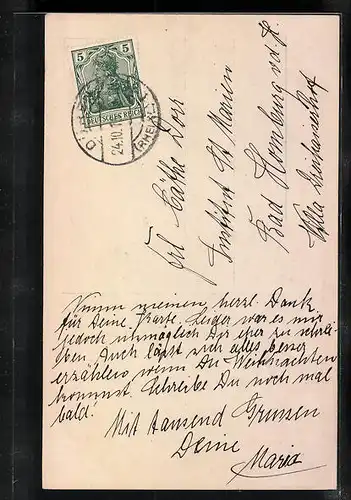 5
DEUTSCHES REICH
24.10.
(RHEIN
Frl Käthe
Institut St Marien
Bad Homburg v.d.H.
Villa
Nimm meinen herzl. Dank
für Deine Karte. Leider war es mir
jedoch unmöglich Dir eher zu schrei
ben. Auch lässt sich alles besser
erzählen wenn Du Weihnachten
kommst. Schreibe Du noch mal
bald!
Mit tausend Grussen
Deine
Maria